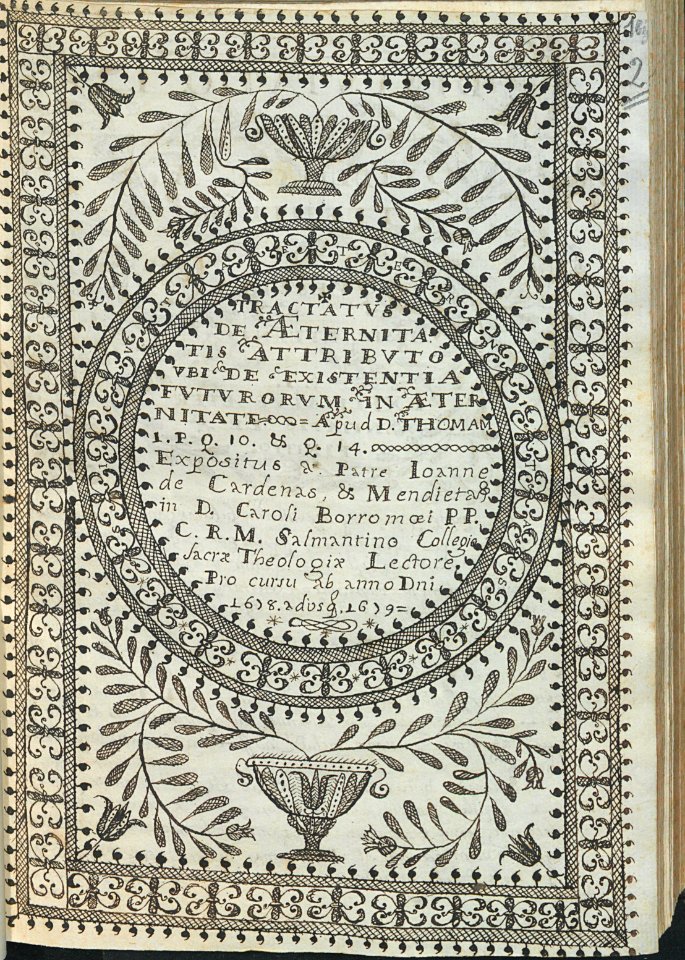 2
TRACTATVS
DE ÆTERNITA
TIS ATTRIBVTO
VBI DE EXISTENTIA
FVTVRORVM IN ÆTER
NITATE = Apud D. THOMAM
1. P. Q. 10. & Q. 14.
Expositus a Patre Ioanne
de Cardenas, & Mendieta
in D. Caroli Borromœi PP.
C. R. M. Salmantino Collegio
Sacræ Theologiæ Lectore.
Pro cursu ab anno Dni
1678. adusq. 1679=